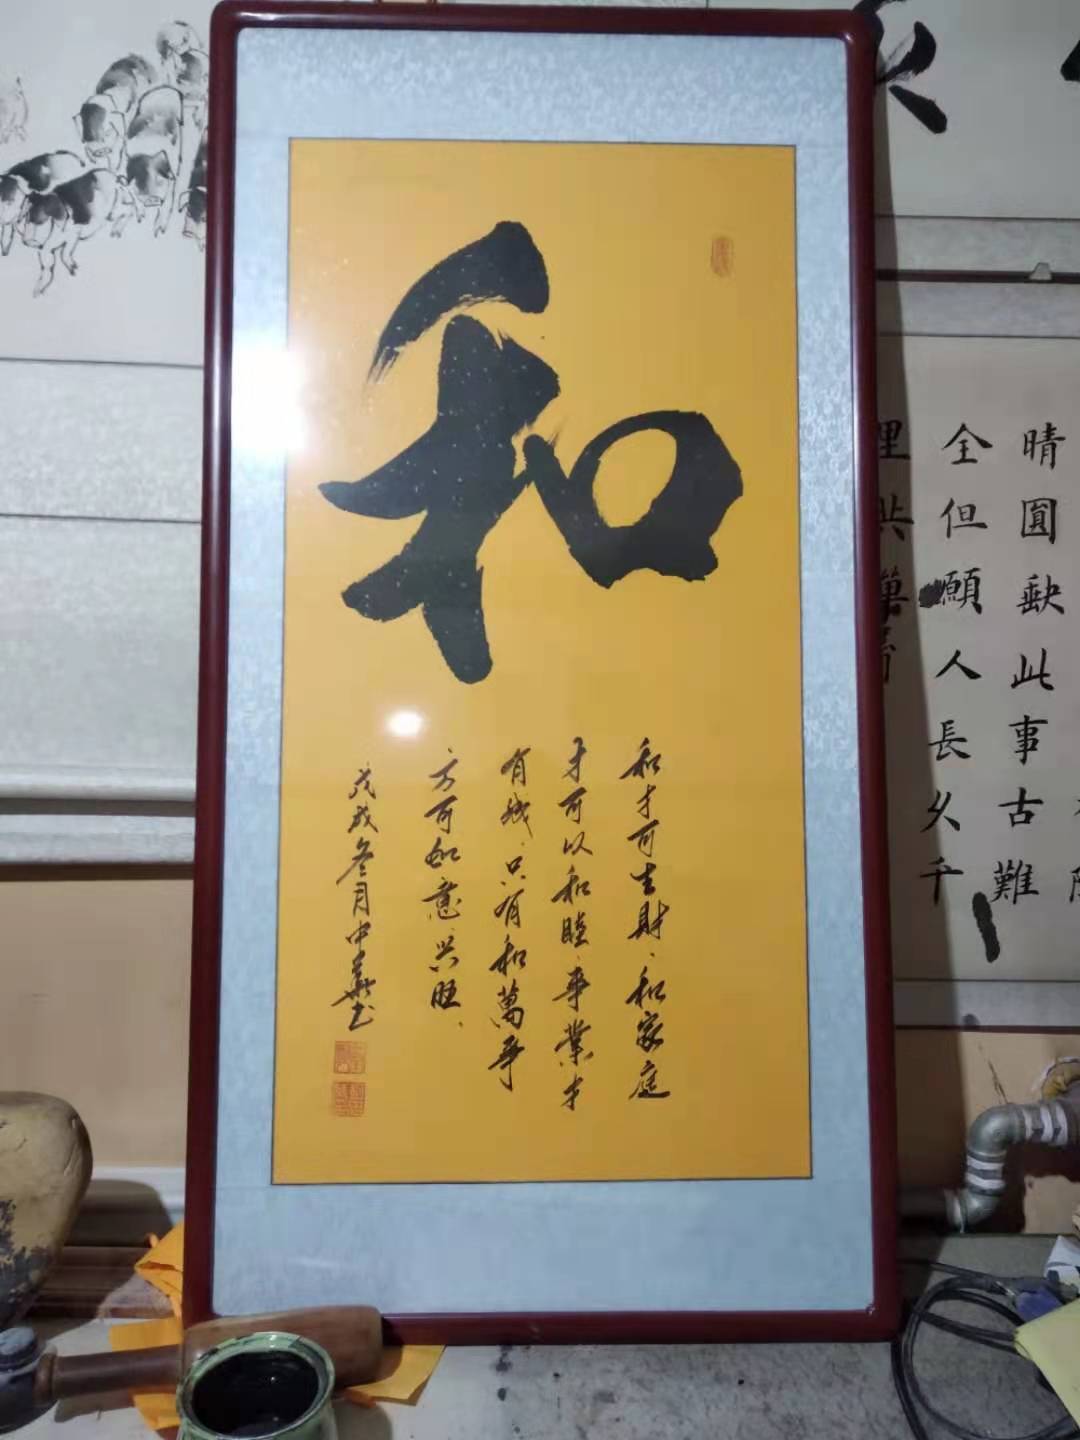 和
和才可生財、和家庭
才可以和睦、事業才
有 、只有和萬事
方可如意、兴旺、
戊戌冬月中華书
晴圓缺此事古難
全但願人長久千
里共